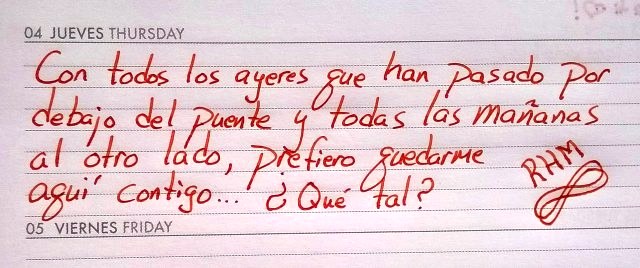 04 JUEVES THURSDAY
Con todos los ayeres que han pasado por
debajo del puente y todas las mañanas
al otro lado, prefiero quedarme
aquí contigo... ¿Qué tal?
RHM
05 VIERNES FRIDAY